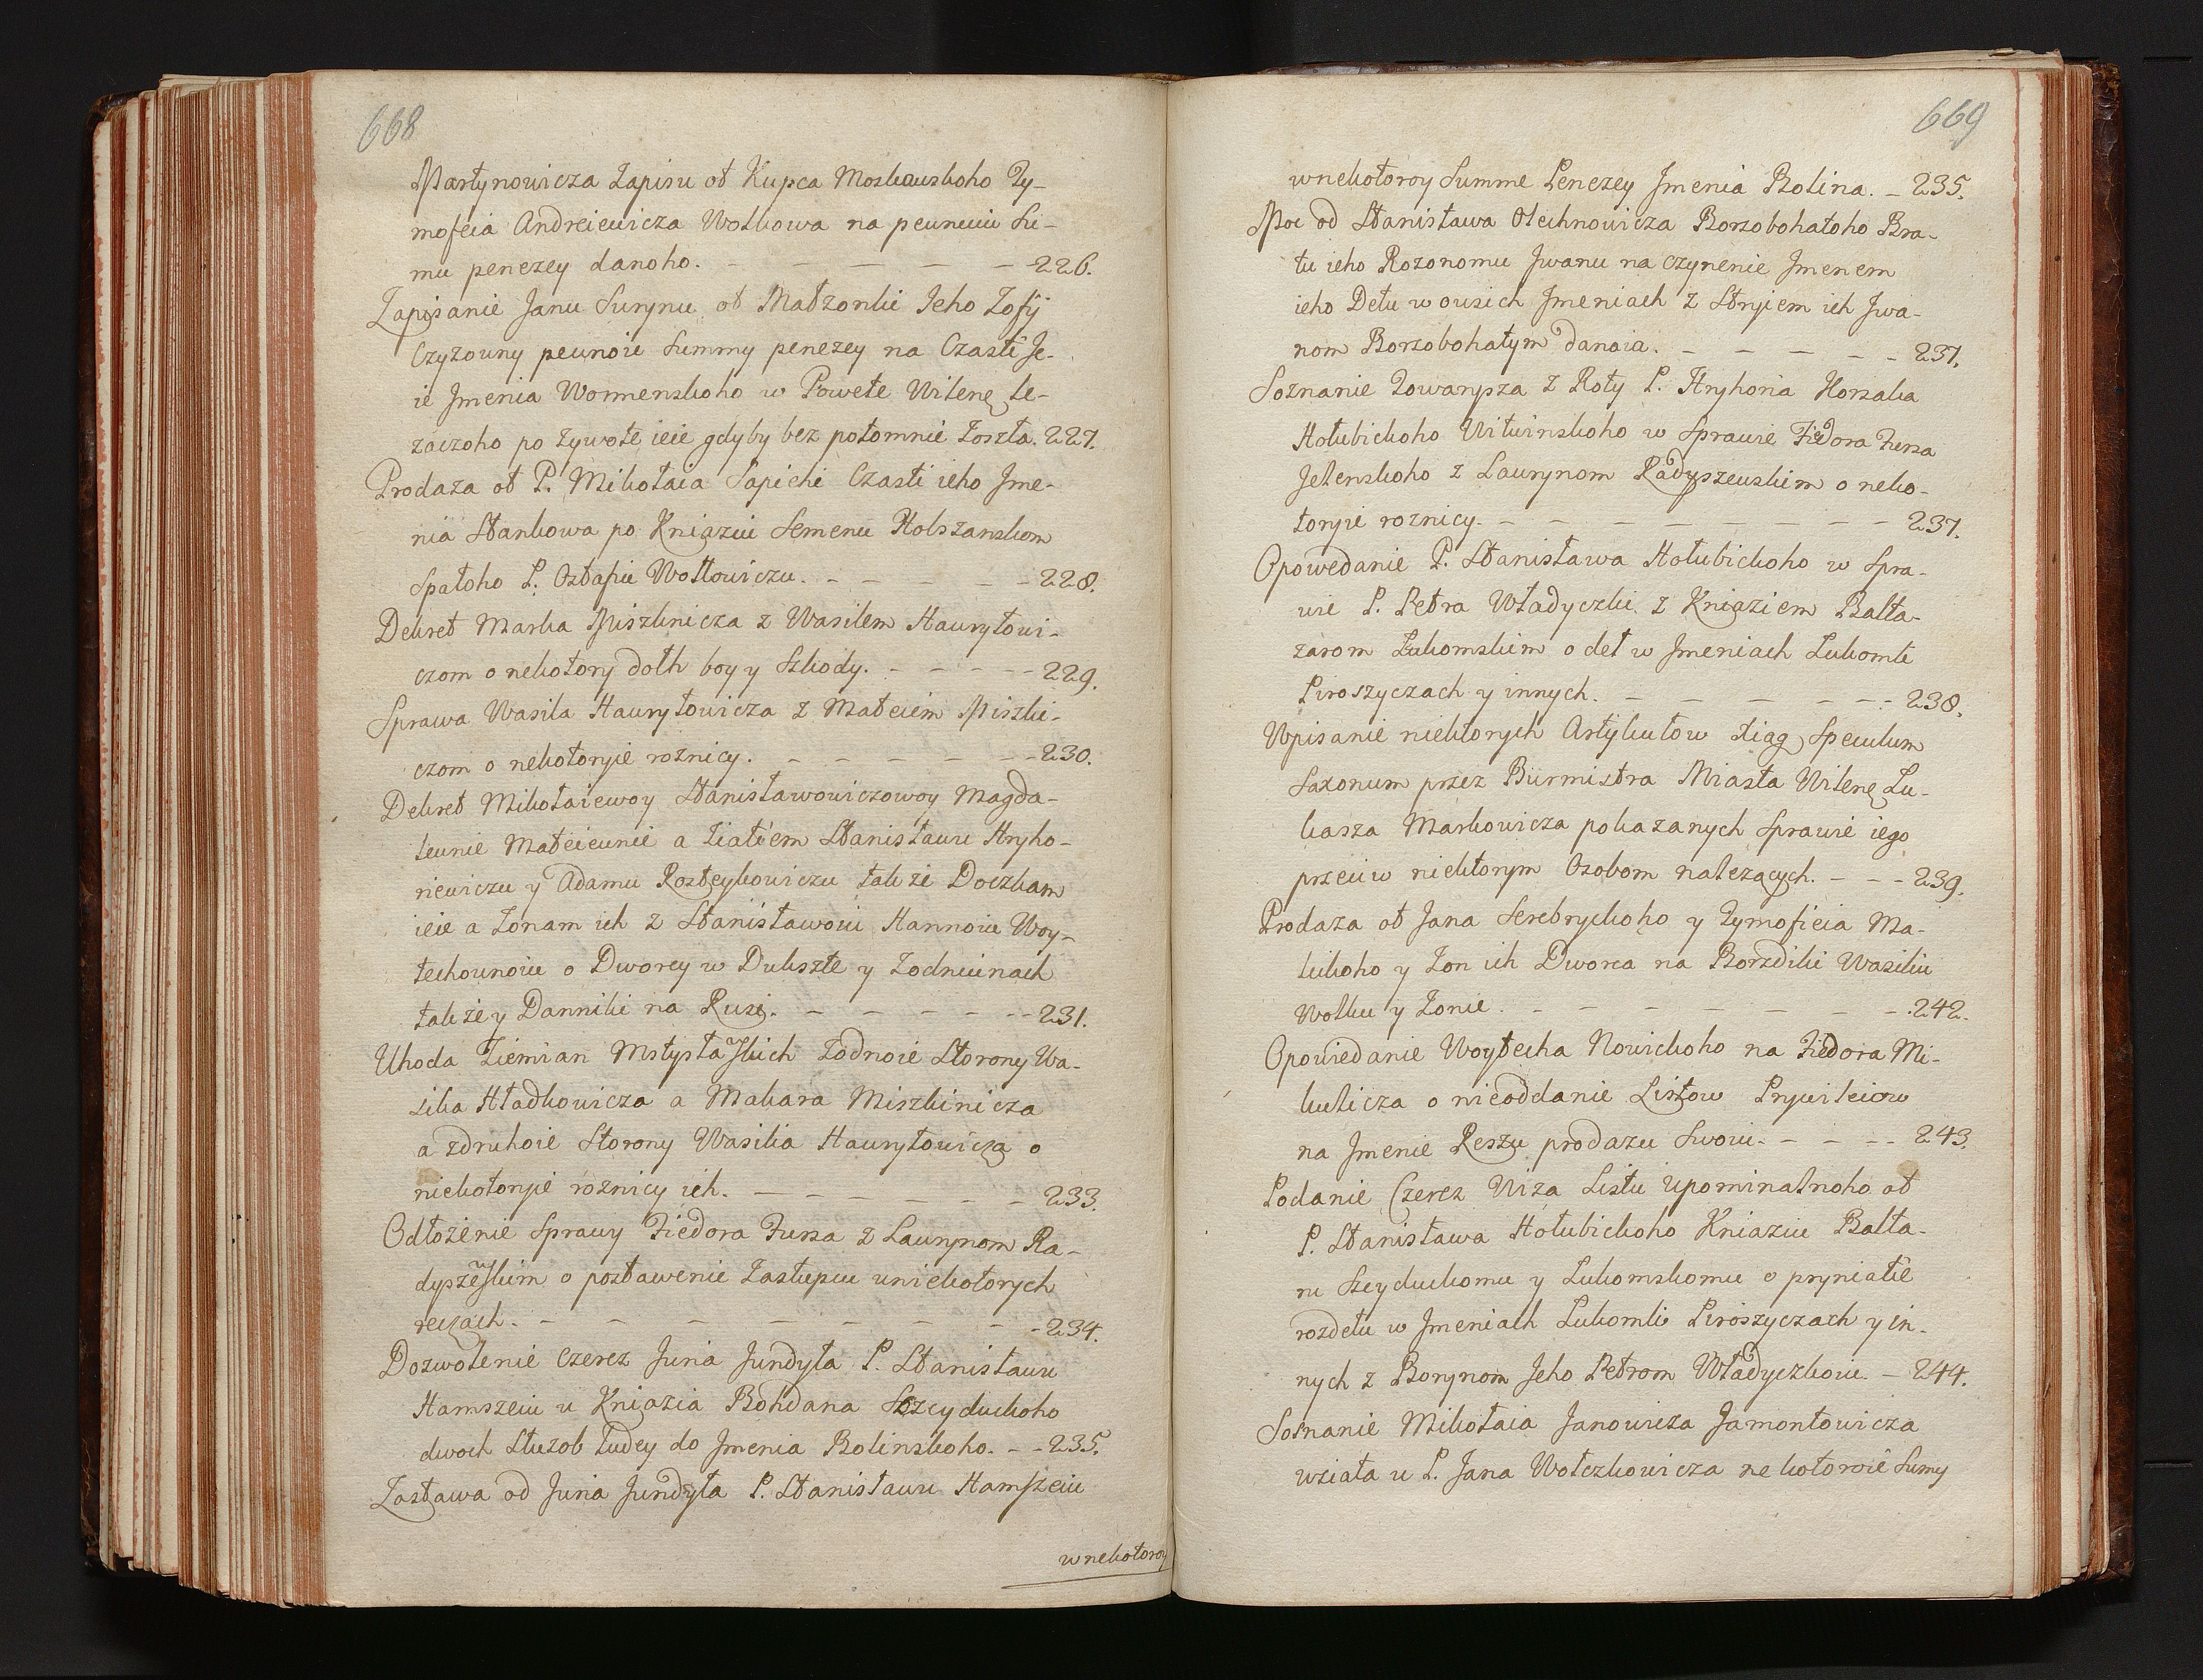 668
Martynowicza Zapisu ot Kupca Moskowskoho Ty-
mofeia Andreiewicza Wolkowa na pewnuiu Su-
mu penezey danoho. — — — — — 226.
Zapisanie Janu Surynu ot Małzonki Jeho Zofij
Czyzowny pewnoie Summy penezey na Czasti Je-
ie Jmenia Wornenskoho w Powete Wilenę le-
zaczoho po zywote ieie gdyby bez potomnie zoszła. 227.
Prodaza ot P. Mikołaia Sapiehi Czasti ieho Jme-
nia Stankowa po Kniaziu Semenu Holszanskom
Spałoho P. Ostafiu Wołłowiczu. — — — — 228.
Dekret Marka Miszkinicza z Wasilem Hawryłowi-
czom o nekotory dołh boy y Szkody. — — — — 229.
Sprawa Wasila Hawryłowicza z Mateiem Miszki-
czom o nekotoryie roznicy. — — — — — 230.
Dekret Mikołaiewoy Stanisławowiczowoy Magda-
lenie Mateiewnie a Ziatiem Stanisławu Hryho-
riewiczu y Adamu Rosteykowiczu takze Doczkam
ieie a Zonam ich z Stanisławoiu Hannoiu Woy-
techownoiu o Dworcy w Dukszte y Zodniuinach
takze y Dannikie na Rusi. — — — — — 231.
Uhoda Ziemian Mstysławskich Zodnoie Storony Wa-
sila Hładkowicza a Makara Miszkinicza
a zdruhoie Storony Wasilia Hawryłowicza o
niekotoryie roznicy ich. — — — — — 233.
Odłożenie Sprawy Fiedora Fursa z Lawrynom Ra-
dyszewskim o postawenie Zastupcu uniekotorych
reczach. — — — — — — — 234.
Dozwolenie Czerez Juria Jundyła P. Stanisławu
Hamszeiu u Kniazia Bohdana Szeyduckoho
dwoch Służob Ludey do Jmenia Rolinskoho. — — 235.
Zastawa od Juria Jundyła P. Stanisławu Hamszeiu
wnekotoroy
669
wnekotoroy Summe Penezey Jmenia Rolina. — 235.
Moc od Stanisława Olechnowicza Borzobohatoho Bra-
tu ieho Rozonomu Jwanu na czynenie Jmenem
ieho Dełu w owsich Jmeniach z Stryiem ich Jwa-
nom Borzobohatym danaia. — — — — — 237.
Soznanie Towarysza z Roty P. Hryhoria Horzaka
Hołubickoho Witwinskoho w Sprawie Fiedora Fursa
Jelenskoho z Lawrynom Radyszewskim o neko-
toryie roznicy. — — — — — — — 237.
Opowedanie P. Stanisława Hołubickoho w Spra-
wie P. Petra Władyczki z Kniaziem Balta-
zarom Łukomskim o deł w Jmeniach Lukomli
Piroszyczach y innych. — — — — — — 238.
Wpisanie niektorych Artykułow xiąg Speculum
Saxonum przez Burmistra Miasta Wilenę Łu-
kasza Markowicza pokazanych Sprawie iego
przeciw niektorym Osobom nalezących. — — — 239.
Prodaza ot Jana Serebryckoho y Tymofieia Ma-
luckoho y Zon ich Dworca na Borzdiki Wasiliu
Wolku y Zonie. — — — — — — — 242.
Opowiedanie Woytecha Nowickoho na Fiedora Mi-
kulicza o nieoddanie Listow Prywileiow
na Jmenie Reszu prodazu Swoiu. — — — — 243.
Podanie Czerez Wiża Listu Upominalnoho ot
P. Stanisława Hołubickoho Kniaziu Balta-
ru Szeyduckomu y Lukomskomu o pryniatie
rozdełu w Jmeniach Lukomli Piroszyczach y in-
nych z Borynom Jeho Petrom Władyczkoiu — 244.
Soznanie Mikołaia Janowicza Jamontowicza
wziata u P. Jana Wołczkowicza nekotoroie Sumy